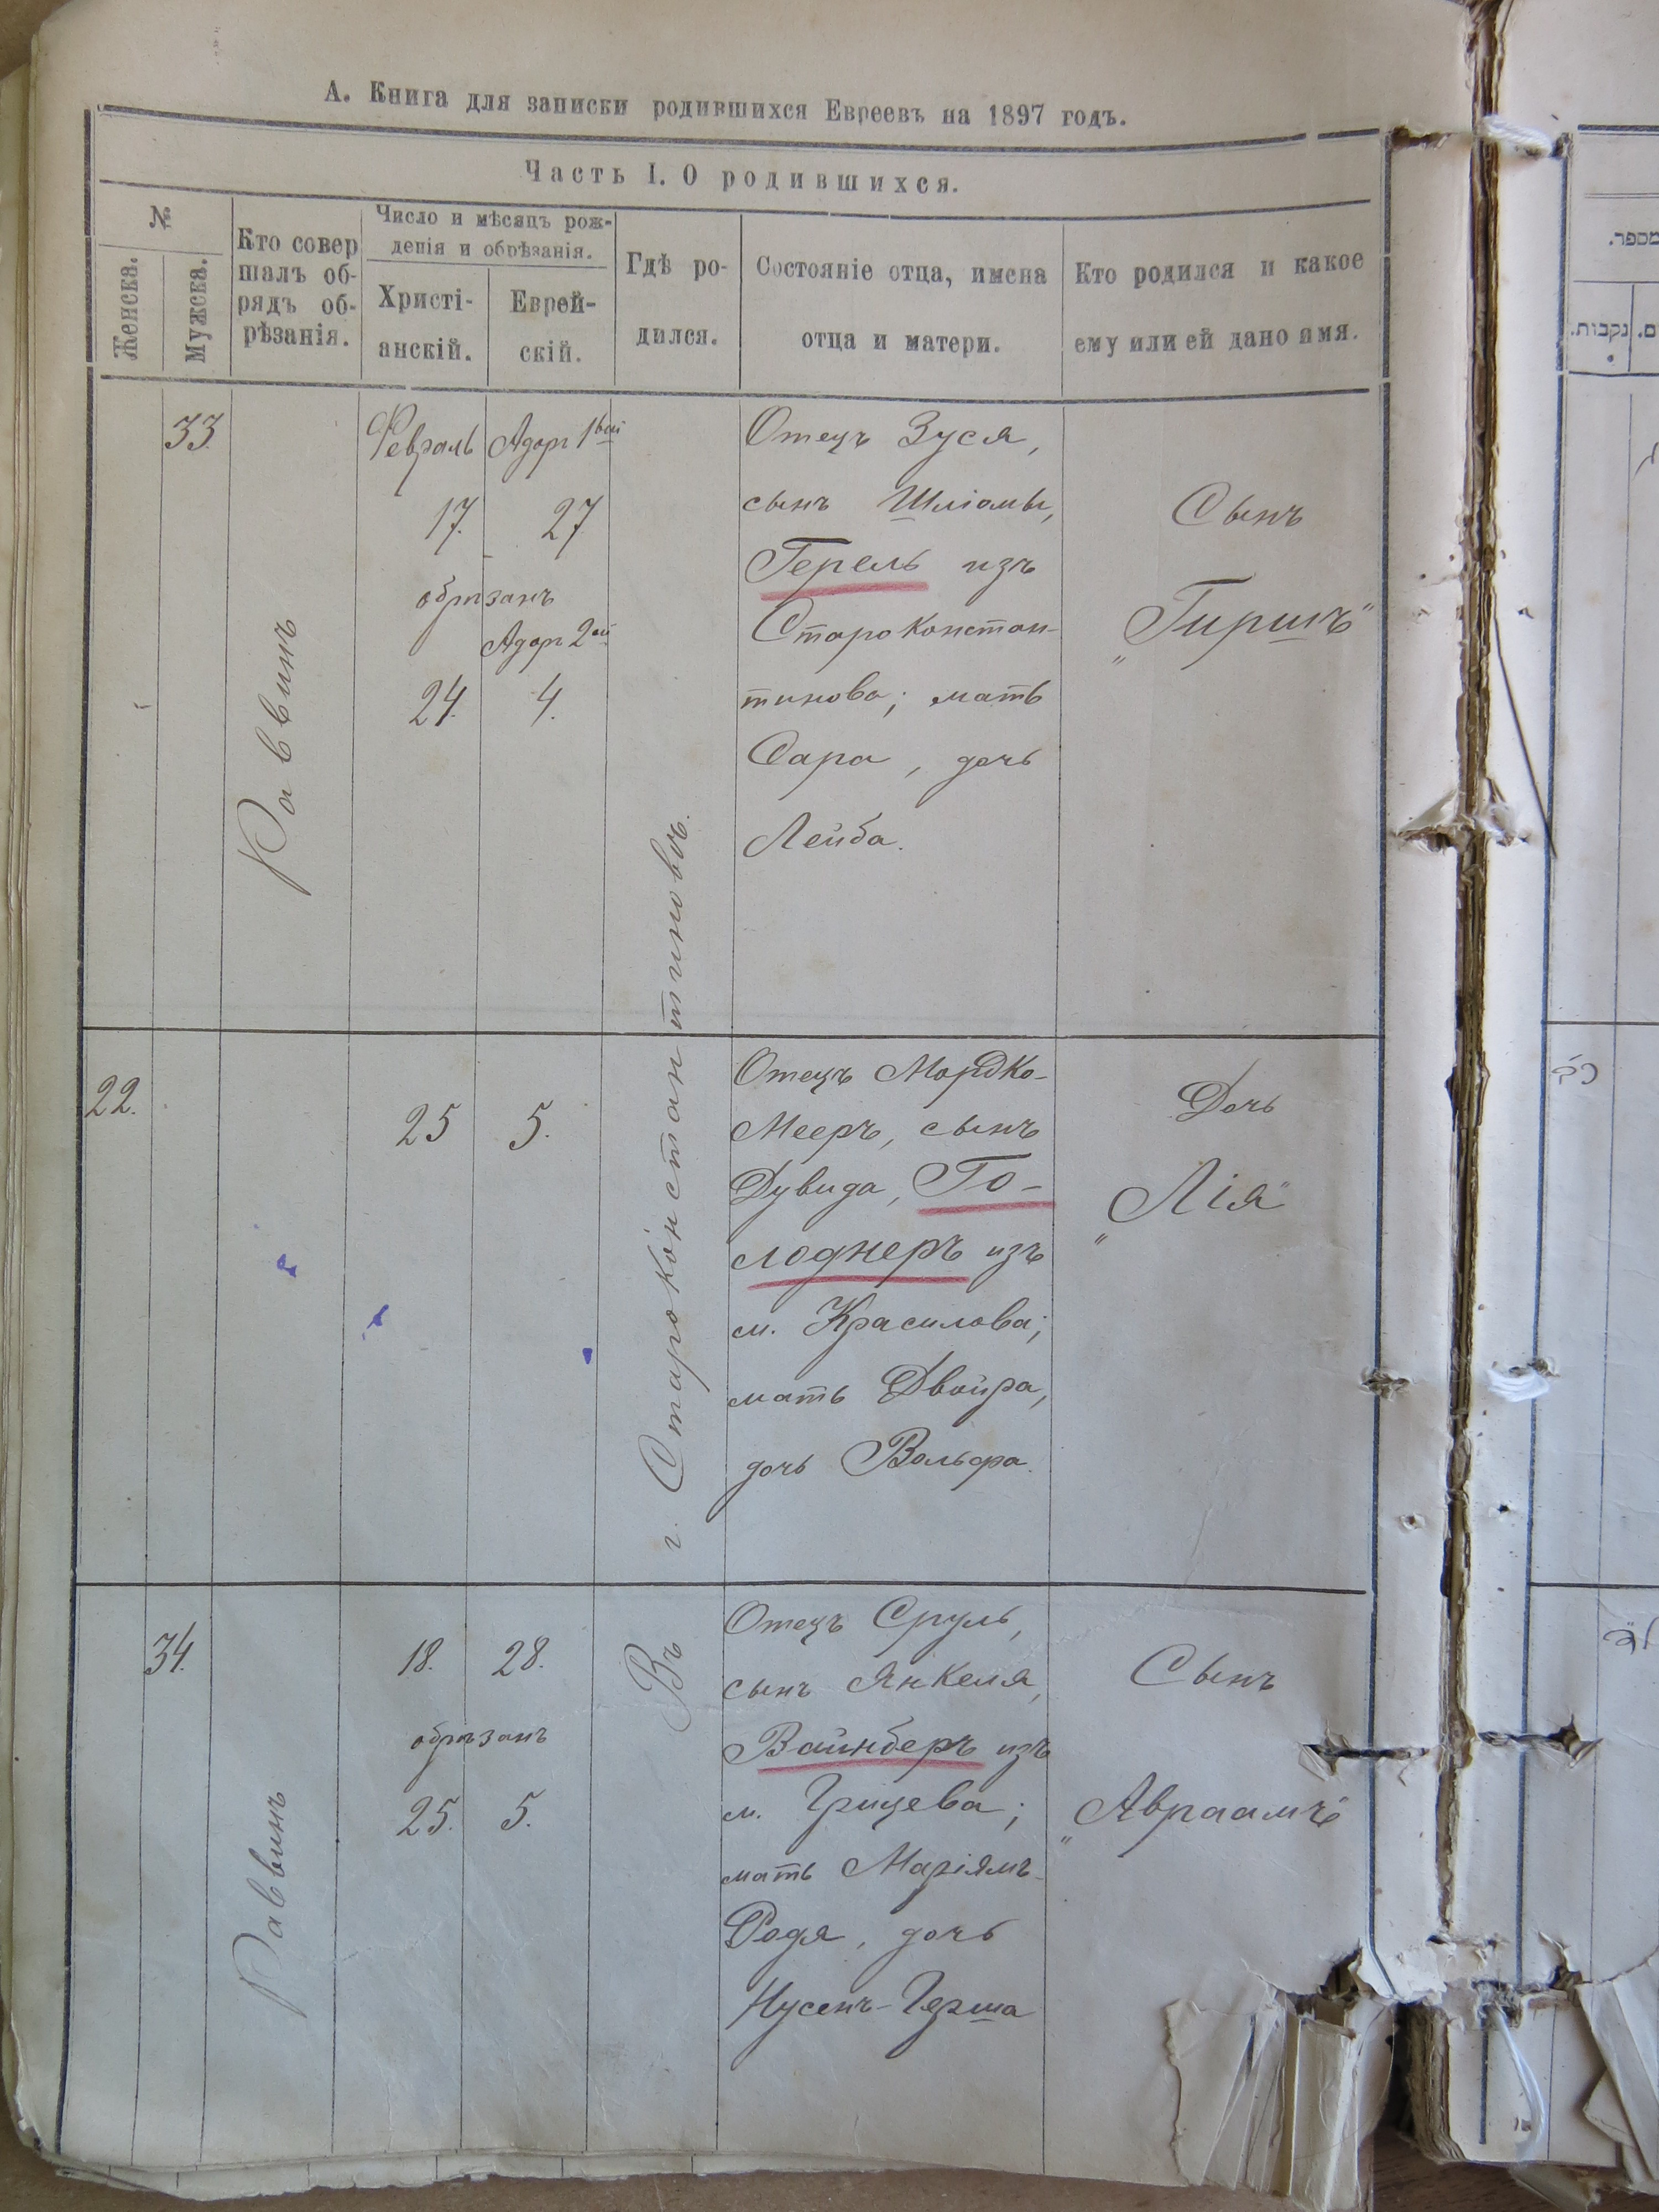 А. Книга для записки родившихся Евреевъ на 1897 годъ.
Часть I. О родившихся.
№
Женска.
Мужска.
Кто совер
шалъ об-
рядъ об-
рѣзанія.
Число и мѣсяцъ рож-
денія и обрѣзанія.
Христі-
анскій.
Еврей-
скій.
Гдѣ ро-
дился.
Состояніе отца, имена
отца и матери.
Кто родился и какое
ему или ей дано имя.
33
Раввинъ
Февраль
17.
обрѣзанъ
24.
Адаръ 1ый
27
Адаръ 2ой
4.
Въ г. Старокон́стантиновѣ.
Отецъ Зуся,
сынъ Шліомы,
Герель изъ
Староконстан-
тинова; мать
Сара, дочь
Лейба.
Сынъ
„Гиршъ"
22.
25
5.
Отецъ Мордко-
Мееръ, сынъ
Дувида, Го-
лоднеръ изъ
м. Красилова;
мать Двойра,
дочь Вольфа.
Дочь
„Лія"
34.
Раввинъ
18.
28.
обрѣзанъ
25.
5.
Отецъ Сруль,
сынъ Янкеля,
Вайнберъ изъ
м. Грицева;
мать Маріямъ-
Родя, дочь
Нусенъ-Герша
Сынъ
„Авраамъ"
מספר.
נקבות.
כב
לד